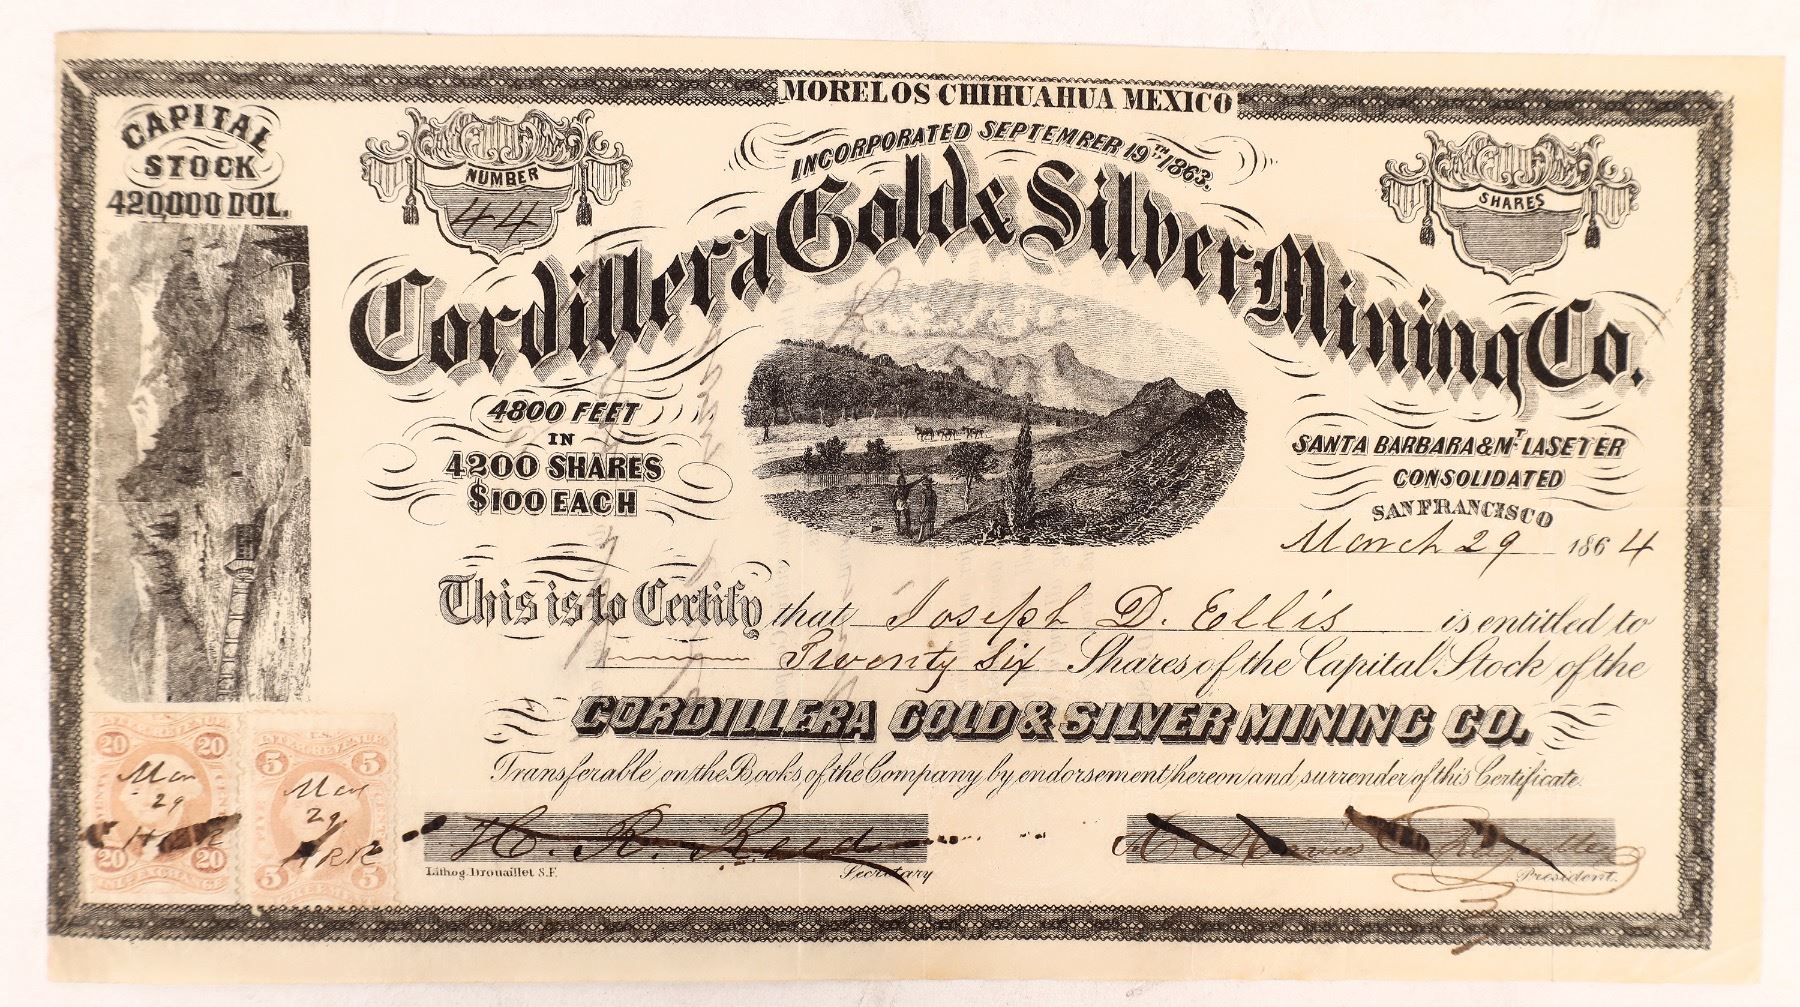 MORELOS CHIHUAHUA MEXICO
CAPITAL
STOCK
420,000 DOL.
NUMBER
44
INCORPORATED SEPTEMBER 19TH 1863.
SHARES
Cordillera Gold & Silver Mining Co.
4800 FEET
IN
4200 SHARES
$100 EACH
SANTA BARBARA & MT. LASETER
CONSOLIDATED
SAN FRANCISCO
March 29 1864
This is to Certify that Joseph D. Ellis is entitled to
Twenty Six Shares of the Capital Stock of the
CORDILLERA GOLD & SILVER MINING CO.
Transferable on the Books of the Company by endorsement hereon and surrender of this Certificate.
20 20
Mar
29
HRR
20 20
5 5
Mar
29
HRR
5 5
H. R. Reed
Lithog. Drouaillet S.F.
Secretary
President.